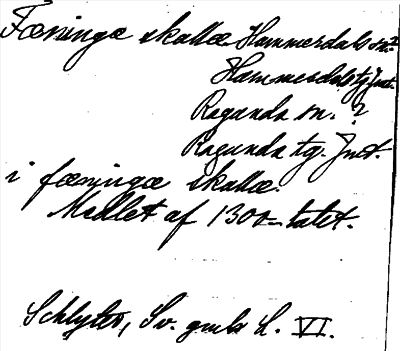 Fæningæ skallæ Hammerdals sn.?
Hammerdals tg. Jmt.
Ragunda sn. ?
Ragunda tg. Jmt.
i fæningæ skallæ.
Medlet af 1300-talet.
Schlyter, Sv. gmls L. VI.